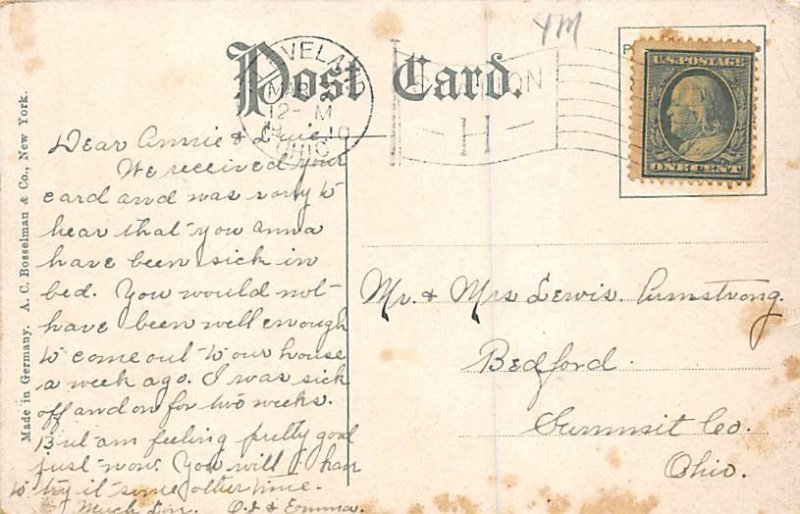 YM
Post Card.
CLEVELAND
MAR
12- M
1910
OHIO
STATION
H
U.S. POSTAGE
ONE CENT
Made in Germany. A. C. Bosselman & Co., New York.
Dear Annie &
We received your
card and was sorry to
hear that you Anna
have been sick in
bed. You would not
have been well enough
to come out to our house
a week ago. I was sick
off and on for two weeks.
But am feeling pretty good
just now. You will have
to try it some other time.
Much Love. O.J & Emma.
Mr. & Mrs Lewis. Armstrong.
Bedford.
Summit Co.
Ohio.